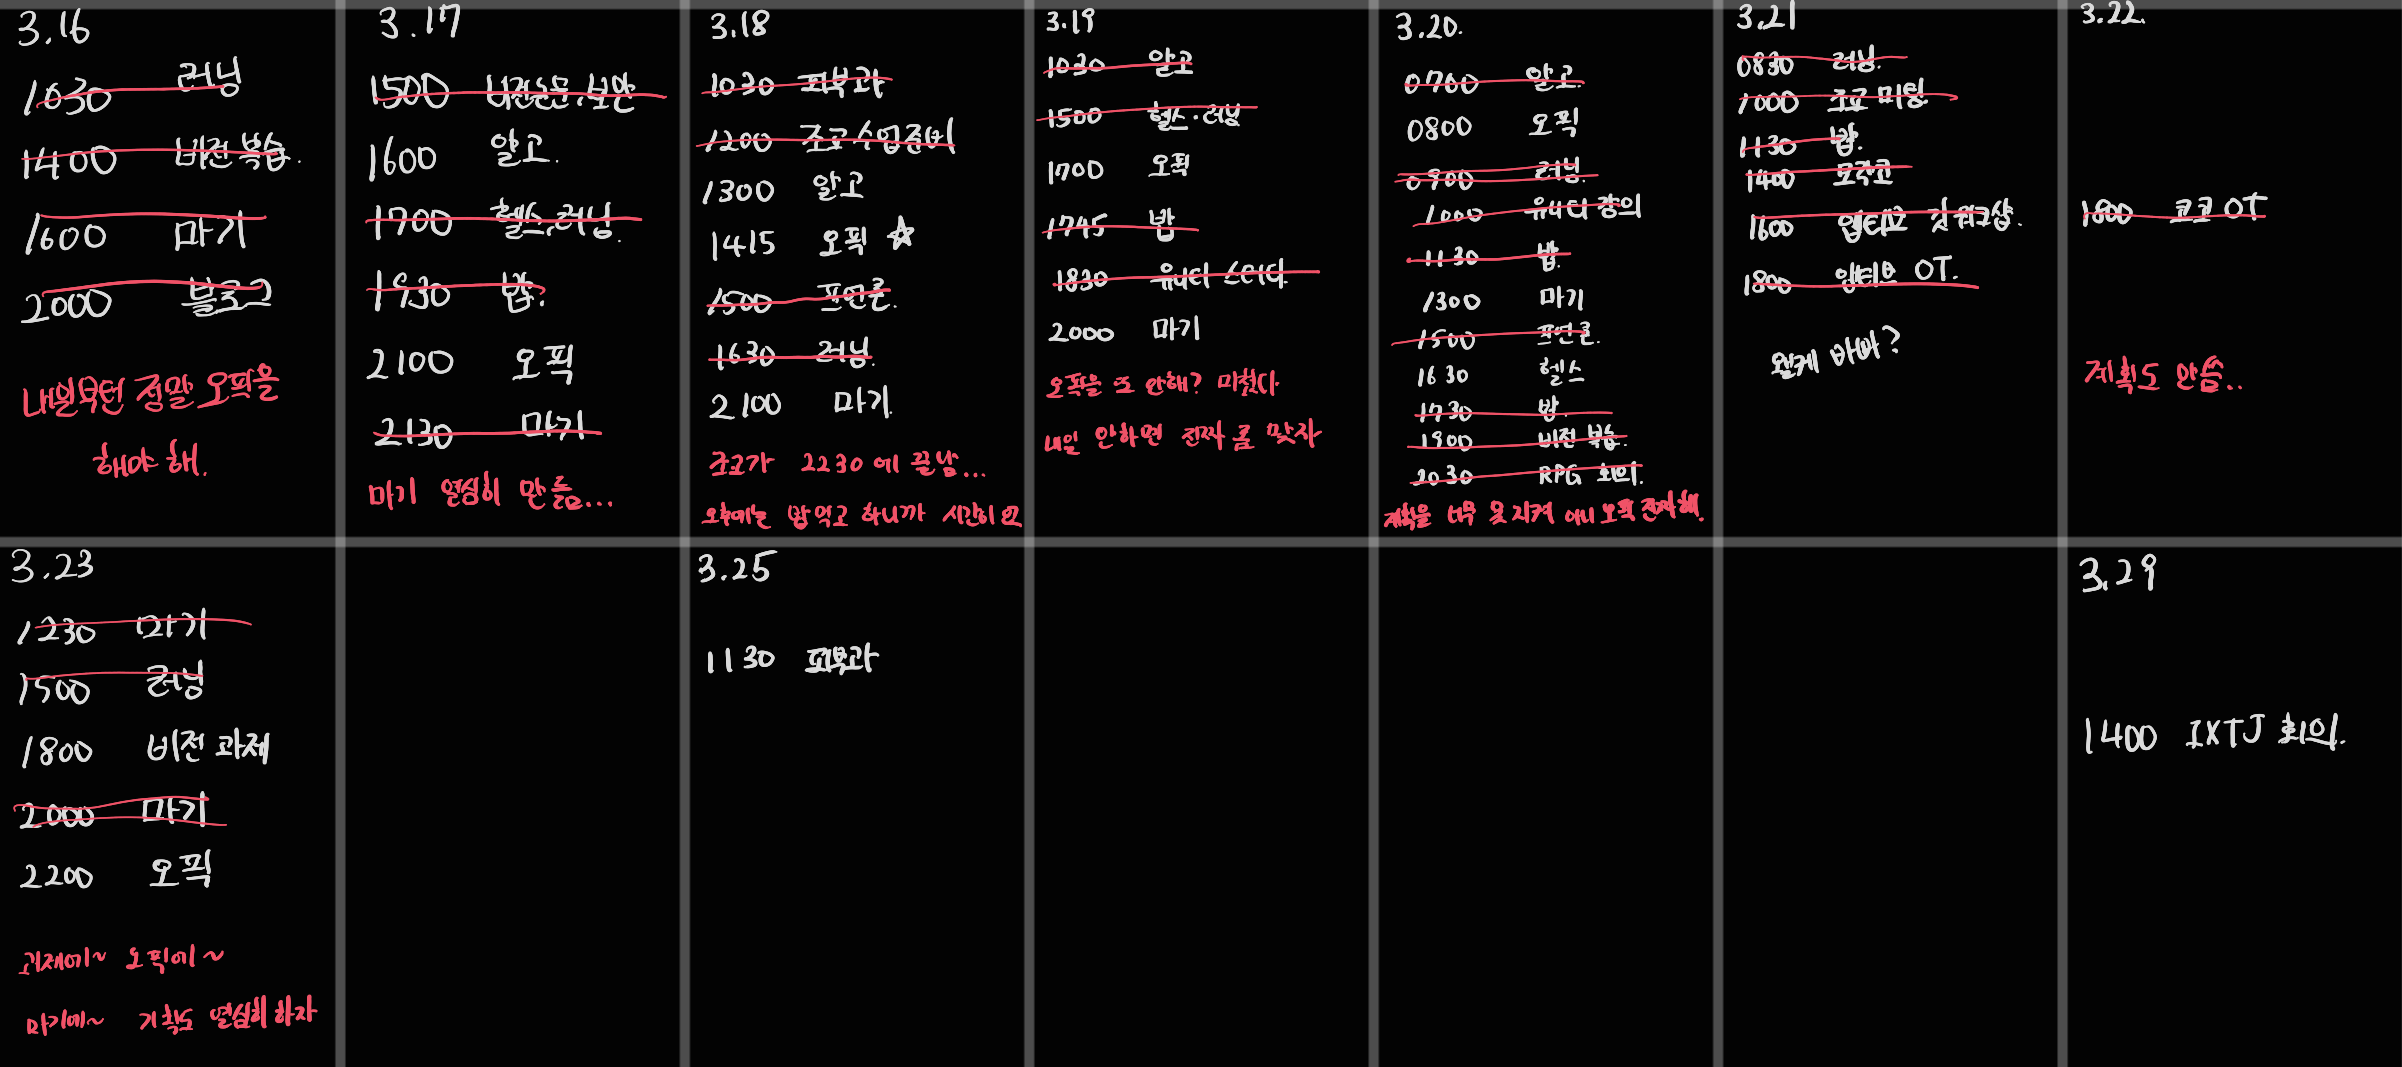 3.16
1030 러닝
1400 비전 복습.
1600 마기
2000 블로그
내일부턴 정말 오픽을
해야 해.
3.17
1500 비전논문, 보안
1600 알고.
1700 헬스, 러닝.
1930 밥.
2100 오픽
2130 마기
마기 열심히 만듦...
3.18
1030 피부과
1200 조교수업준비
1300 알고
1415 오픽 ☆
1500 프언론.
1630 러닝.
2100 마기.
조교가 2230에 끝남...
오후에는 밥먹고 하니까 시간이 없
3.19
1030 알고
1500 헬스·러닝
1700 오픽
1745 밥
1830 유니티 스터디.
2000 마기
오픽을 또 안해? 미쳤다
내일 안하면 진짜 좀 맞자
3.20.
0700 알고.
0800 오픽
0900 러닝.
1000 유니티 강의
1130 밥.
1300 마기
1500 프언론.
1630 헬스
1730 밥.
1900 비전 복습.
2030 RPG 회의.
계획을 너무 못 지켜 아니 오픽 진짜 해.
3.21
0830 러닝.
1000 조교 미팅
1130 밥.
1400 모각코
1600 깃 워크샵.
1800 OT.
왤케 바빠?
3.22.
1800 코코 OT
계획도 안씀..
3.23
1230 마기
1500 러닝
1800 비전 과제
2000 마기
2200 오픽
과제에~ 오픽에~
마기에~ 기획도 열심히 하자
3.25
1130 피부과
3.29
1400 IXTJ 회의.